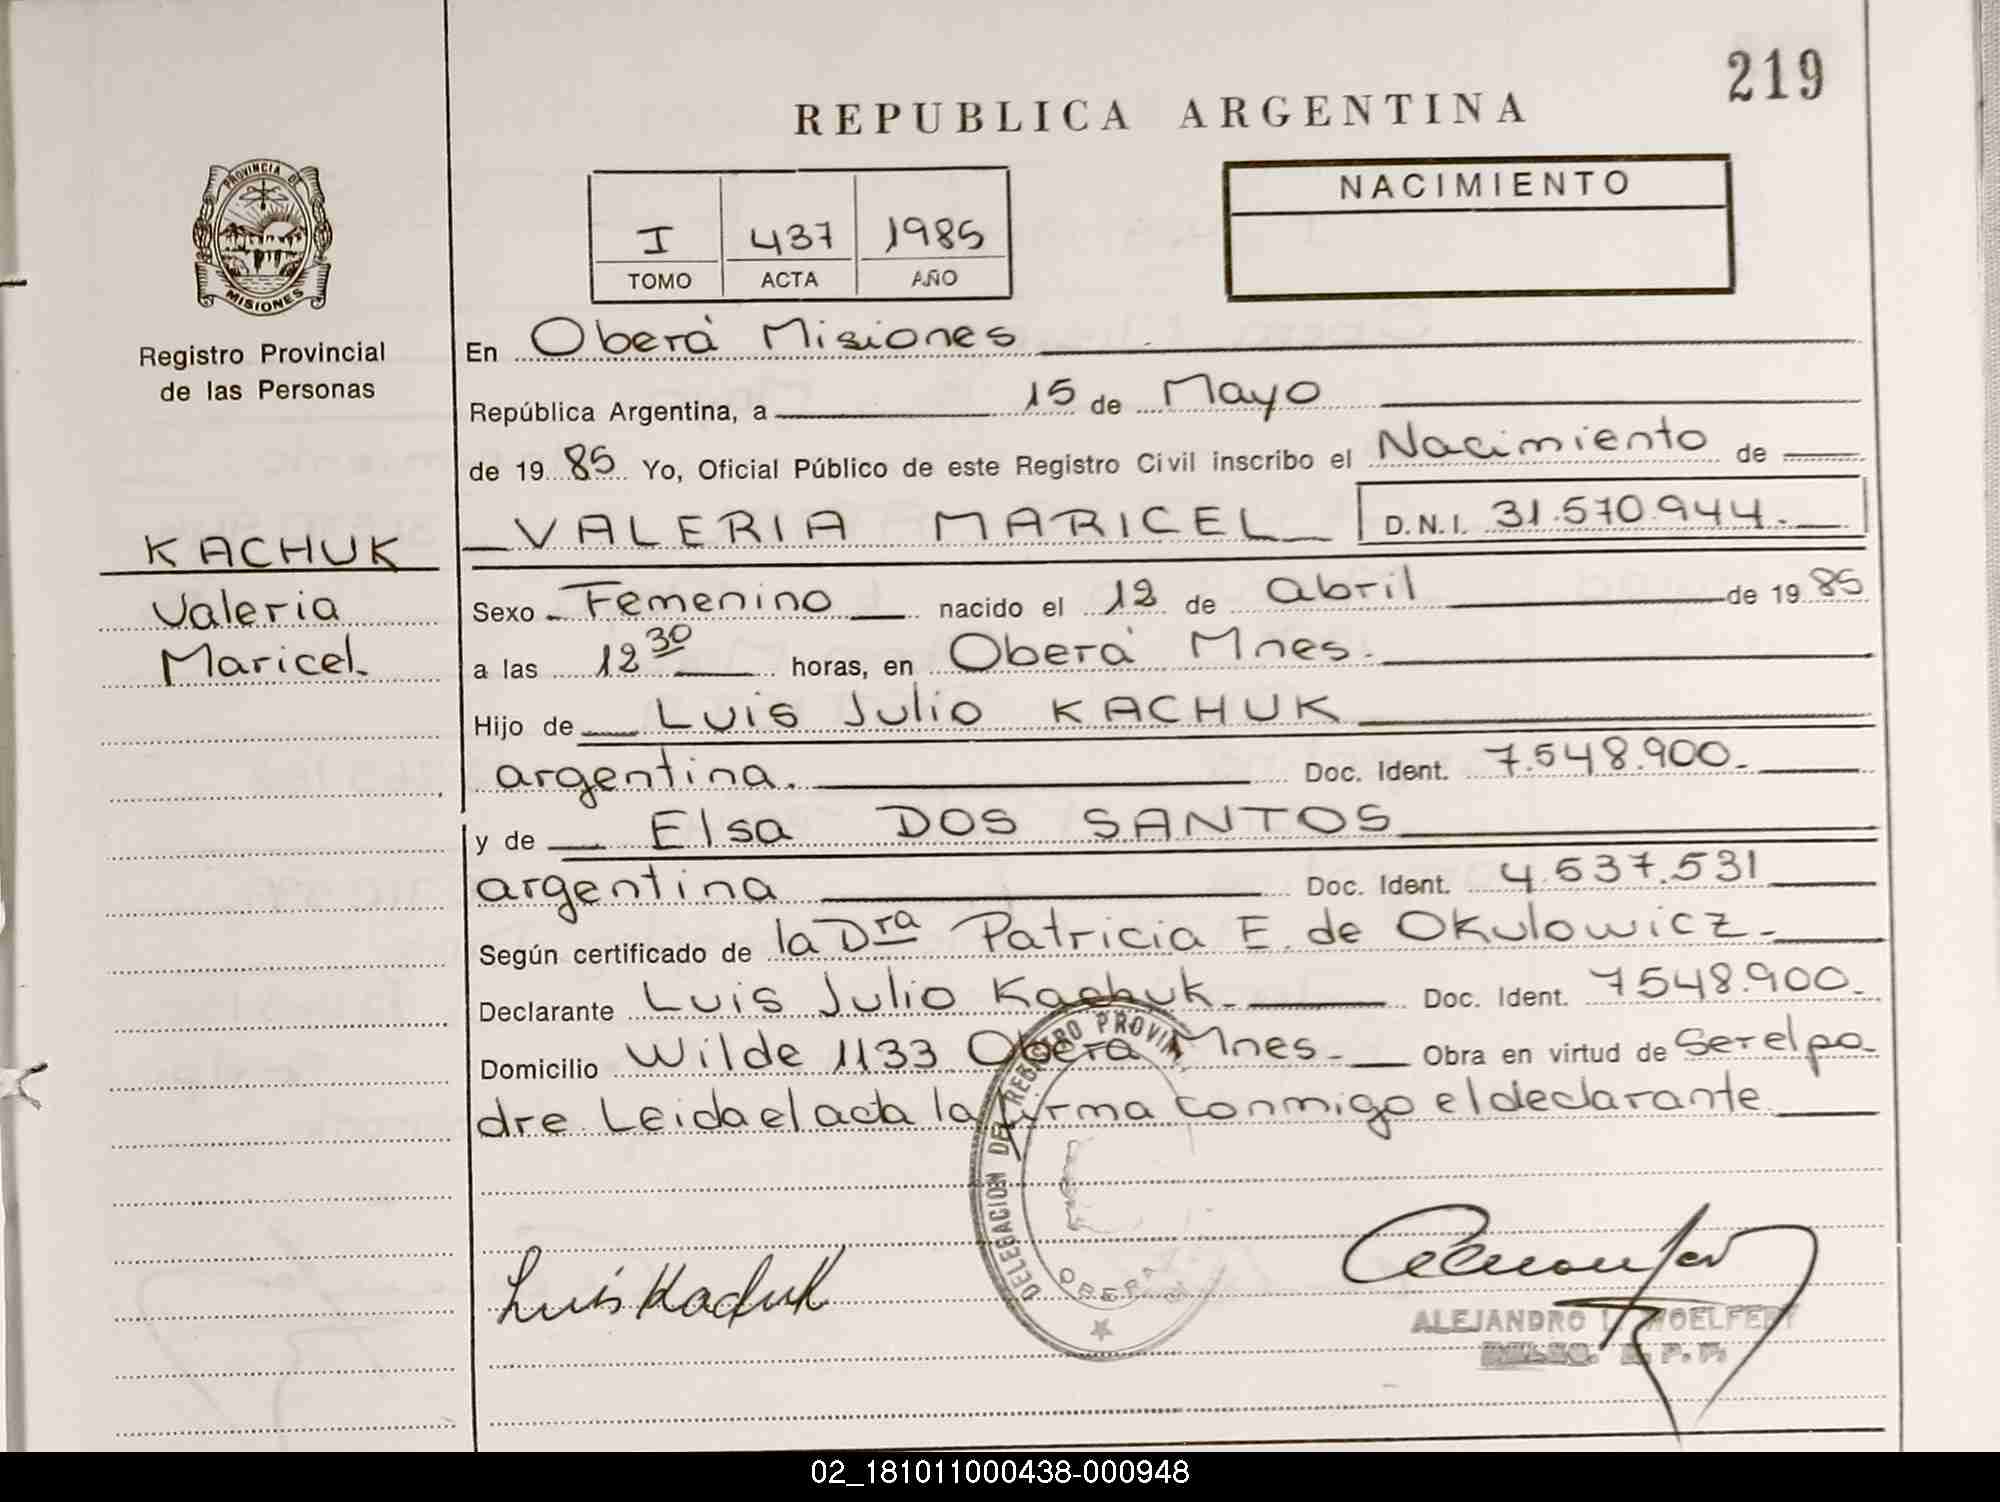 219
REPUBLICA ARGENTINA
PROVINCIA DE
MISIONES
Registro Provincial
de las Personas
I 437 1985
TOMO ACTA AÑO
NACIMIENTO
En Oberá Misiones
República Argentina, a 15 de Mayo
de 19 85 Yo, Oficial Público de este Registro Civil inscribo el Nacimiento de
VALERIA MARICEL D.N.I. 31.570.944.
KACHUK
Valeria
Maricel.
Sexo Femenino nacido el 12 de abril de 19 85
a las 12 30 horas, en Oberá Mnes.
Hijo de Luis Julio KACHUK
argentina. Doc. Ident. 7.548.900.
y de Elsa DOS SANTOS
argentina Doc. Ident. 4.537.531
Según certificado de la Dra Patricia E. de Okulowicz.
Declarante Luis Julio Kachuk. Doc. Ident. 7548.900.
Domicilio Wilde 1133 Oberá Mnes. Obra en virtud de Ser el pa
dre. Leida el acta la firma conmigo el declarante
DELEGACION DEL REGISTRO PROVIN
OBERA
Luis Kachuk
ALEJANDRO WOELFERT
02_181011000438-000948